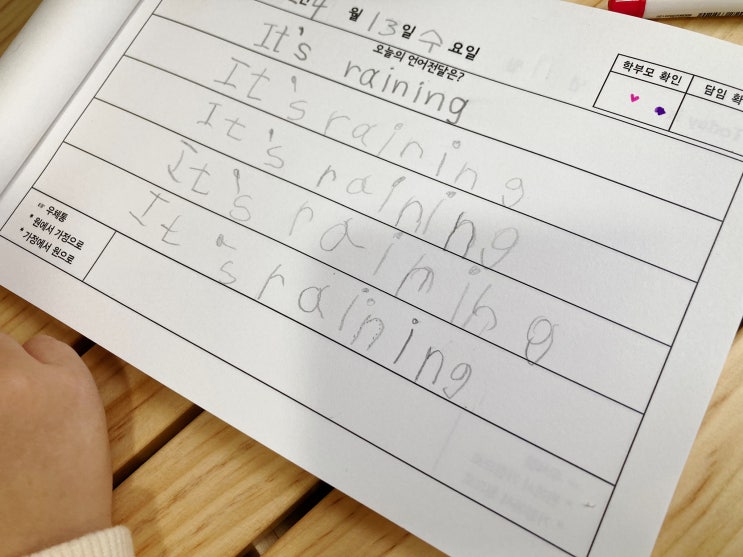 4 월 13 일 수 요일
오늘의 언어전달은?
학부모 확인
담임 확
It's raining
It's raining
It's raining
It's raining
It's raining
우체통
* 원에서 가정으로
* 가정에서 원으로